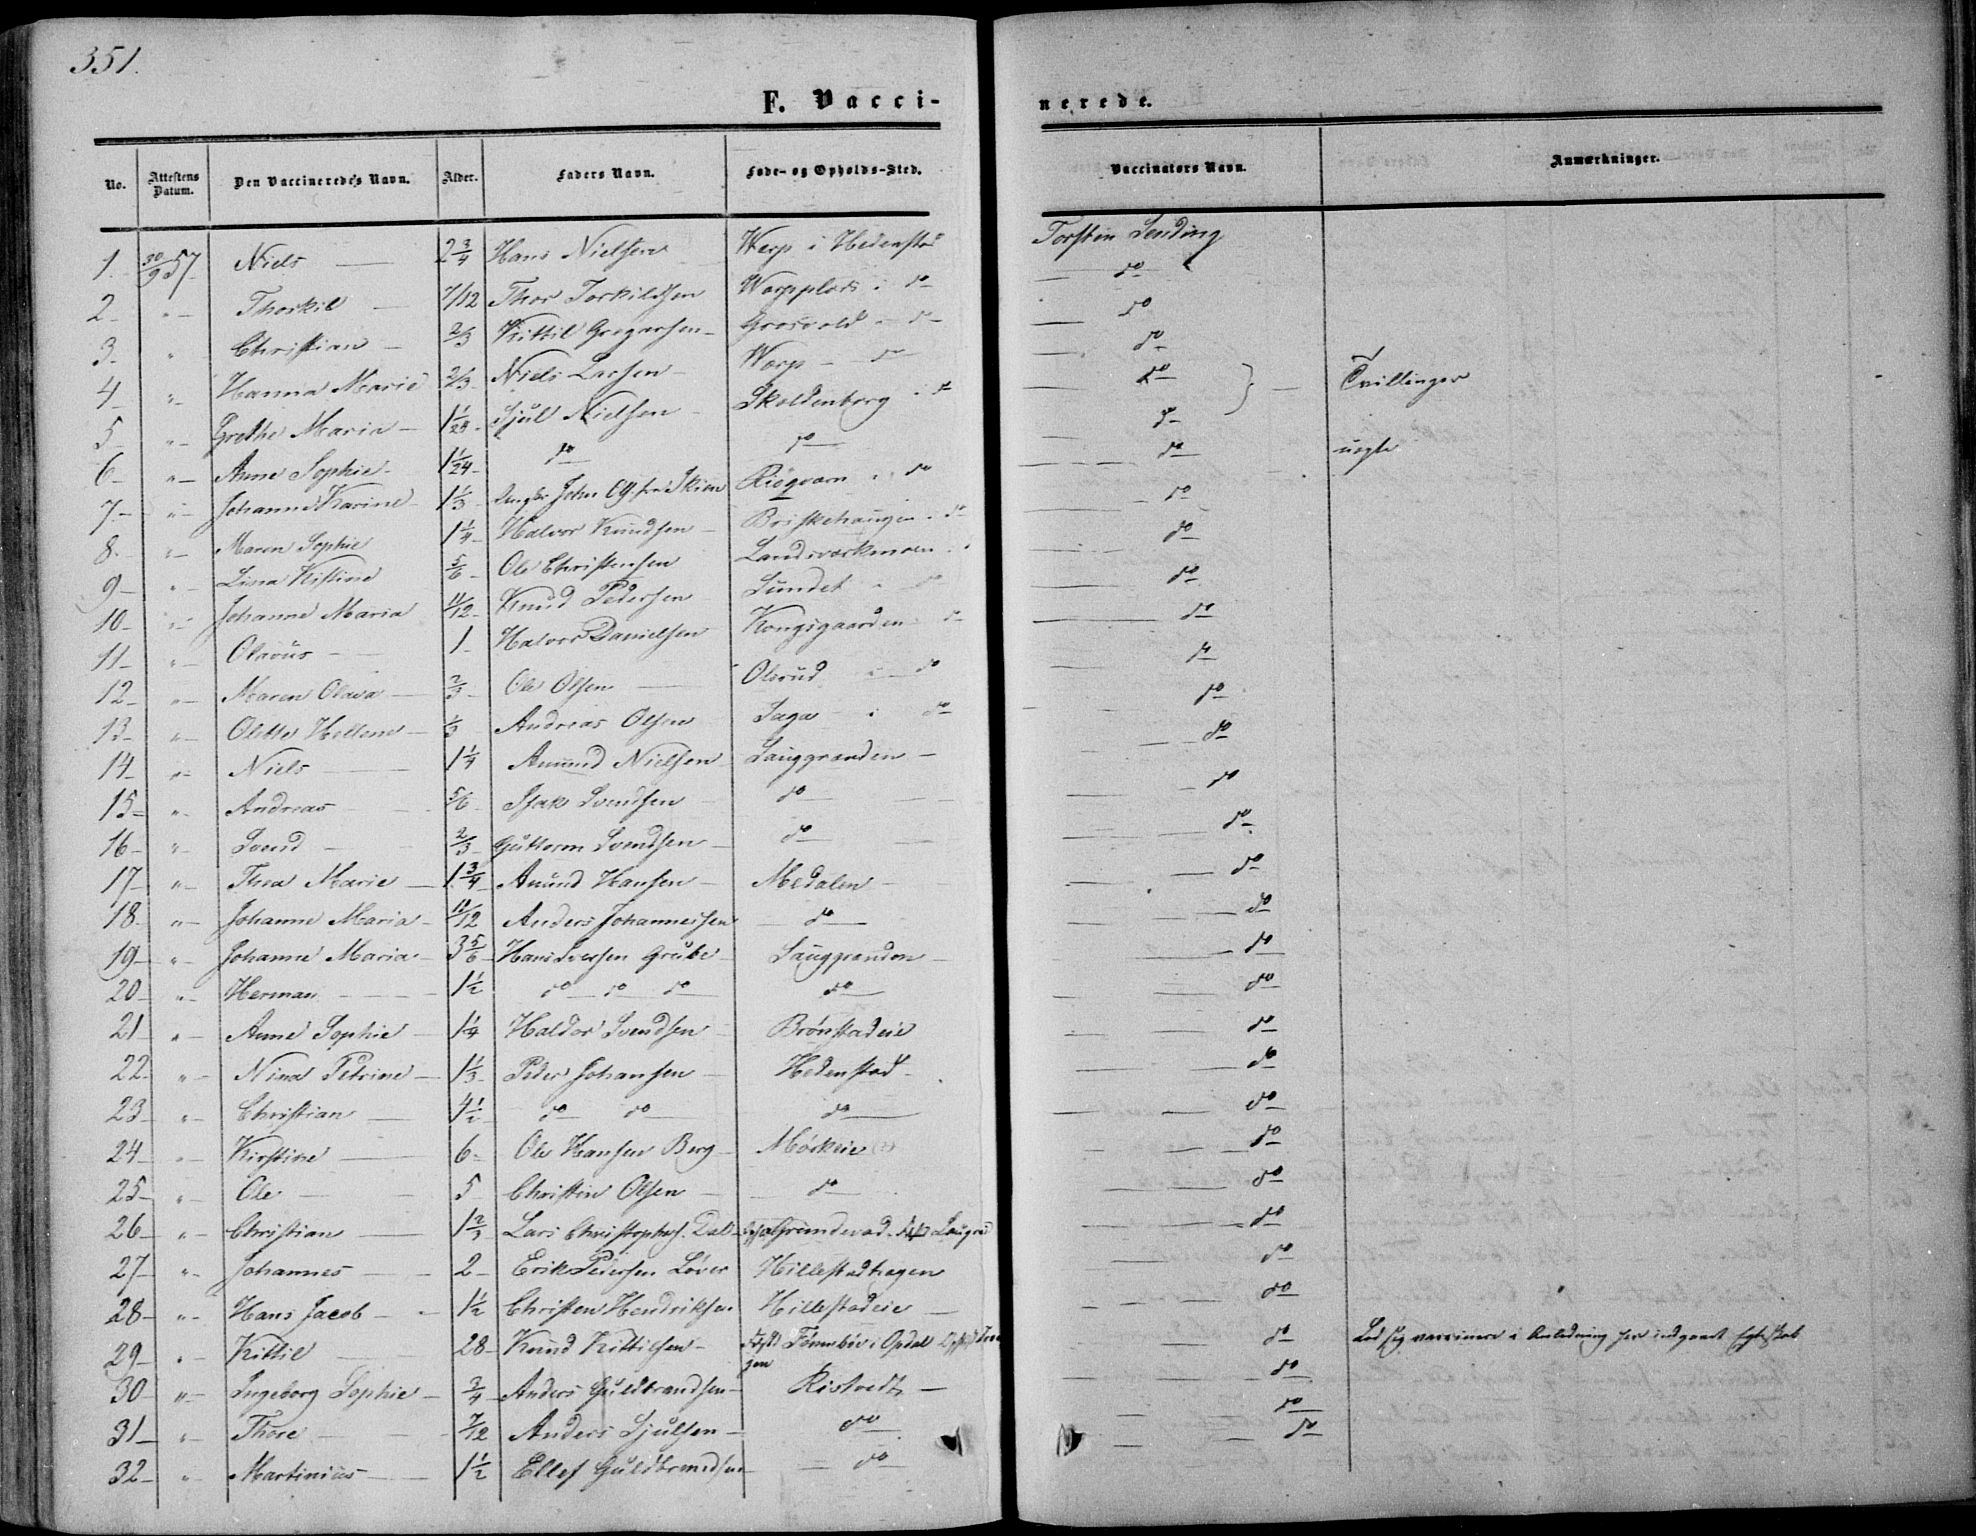 351.
F. Vacci-
nerede.
No. Attestens Datum. Den Vaccineredes Navn. Alder. Faders Navn. Føde- og Opholds-Sted. Vaccinators Navn. Anmærkninger.
1. 30/9 57 Niels — 2 3/4 Hans Nielsen Werp i Hedenstad Torsten Sending
2 " Thorkil — 7/12 Thor Torkildsen Werpplads i do — do
3. " Christian — 2/3 Kittil Gregersen Grosvold — do — do
4 " Hanna Marie 2/3 Niels Larsen Werp — do — do
5 " Grethe Maria — 1 1/24 Sjul Nielsen Skoldenborg i do — do } Tvillinger
6 " Anne Sophie 1 1/24 do do — do
7 " Johanne Karine 1 1/3 John fra Skien i do — do uegte
8 " Maren Sophie 1 1/4 Halvor Knudsen Briskehaugen i do — do
9 " Lina Kistine 5/6 Ole Christensen Landsverkmoen — do
10 " Johanne Maria 11/12 Knud Pedersen Sundet " do — do
11 " Olavus — 1 Halvor Danielsen Kongsgaarden do — do
12 " Maren Olava — 2/3 Ole Olsen Olsrud i do — do
13 " Olette Hellene — 1/3 Andreas Olsen Saga i do — do
14 " Niels — 1 1/4 Amund Nielsen Lauggranden — — do
15 " Andreas — 5/6 Isak Svendsen do — do
16 " Svend — 2/3 Guttorm Svendsen do — do
17 " Thea Marie — 1 3/4 Amund Hansen Medalen — — do
18 " Johanne Maria 11/12 Anders Johannessen do — do
19 " Johanne Maria 3 5/6 Hans Iversen Grube Lauggranden — — do
20 " Herman — 1 1/2 do do do do — do
21 " Anne Sophie — 1 1/4 Haldor Svendsen Brønstadeie — do
22 " Nina Petrine — 1 1/3 Peder Johansen Hedenstad — do
23 " Christian — 4 1/2 do do do — do
24 " Kirstine — 6 Ole Hansen Berg Mørkeie — do
25 " Ole — 5 Christen Olsen do — do
26 " Christian — 1 2/3 Lars Christophs. Dal — do
27 " Johannes — 2 Erik Pedersen Løver Hillestadhagen — do
28 " Hans Jacob — 1 1/2 Christen Hendriksen Hillestadeie — do
29 " Kittil — 28 Knud Kittilsen i Opdal do Lod sig vaccinere i Anledning her indgaaet Egteskab
30 " Ingeborg Sophie — 3/4 Anders Guldbrandsen Ristvedt — — do
31 " Thore — 7/12 Anders Sjulsen do — do
32 " Martinius — 1 1/2 Ellef Guldbrandsen do — do